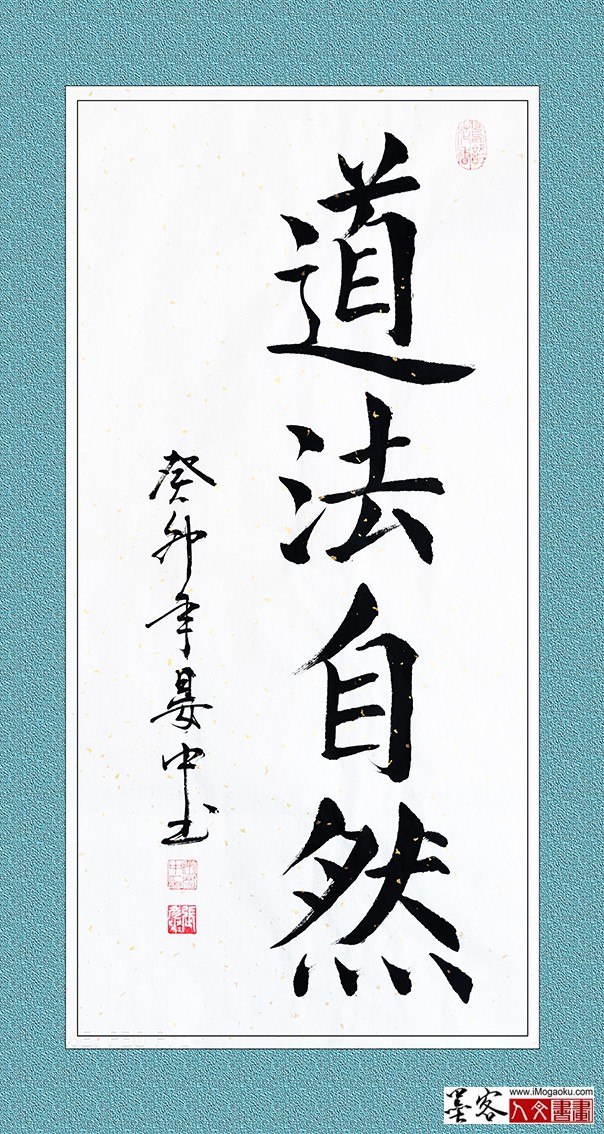 道法自然
癸卯年晏中书
墨客
www.iMogaoku.com
人文書畫